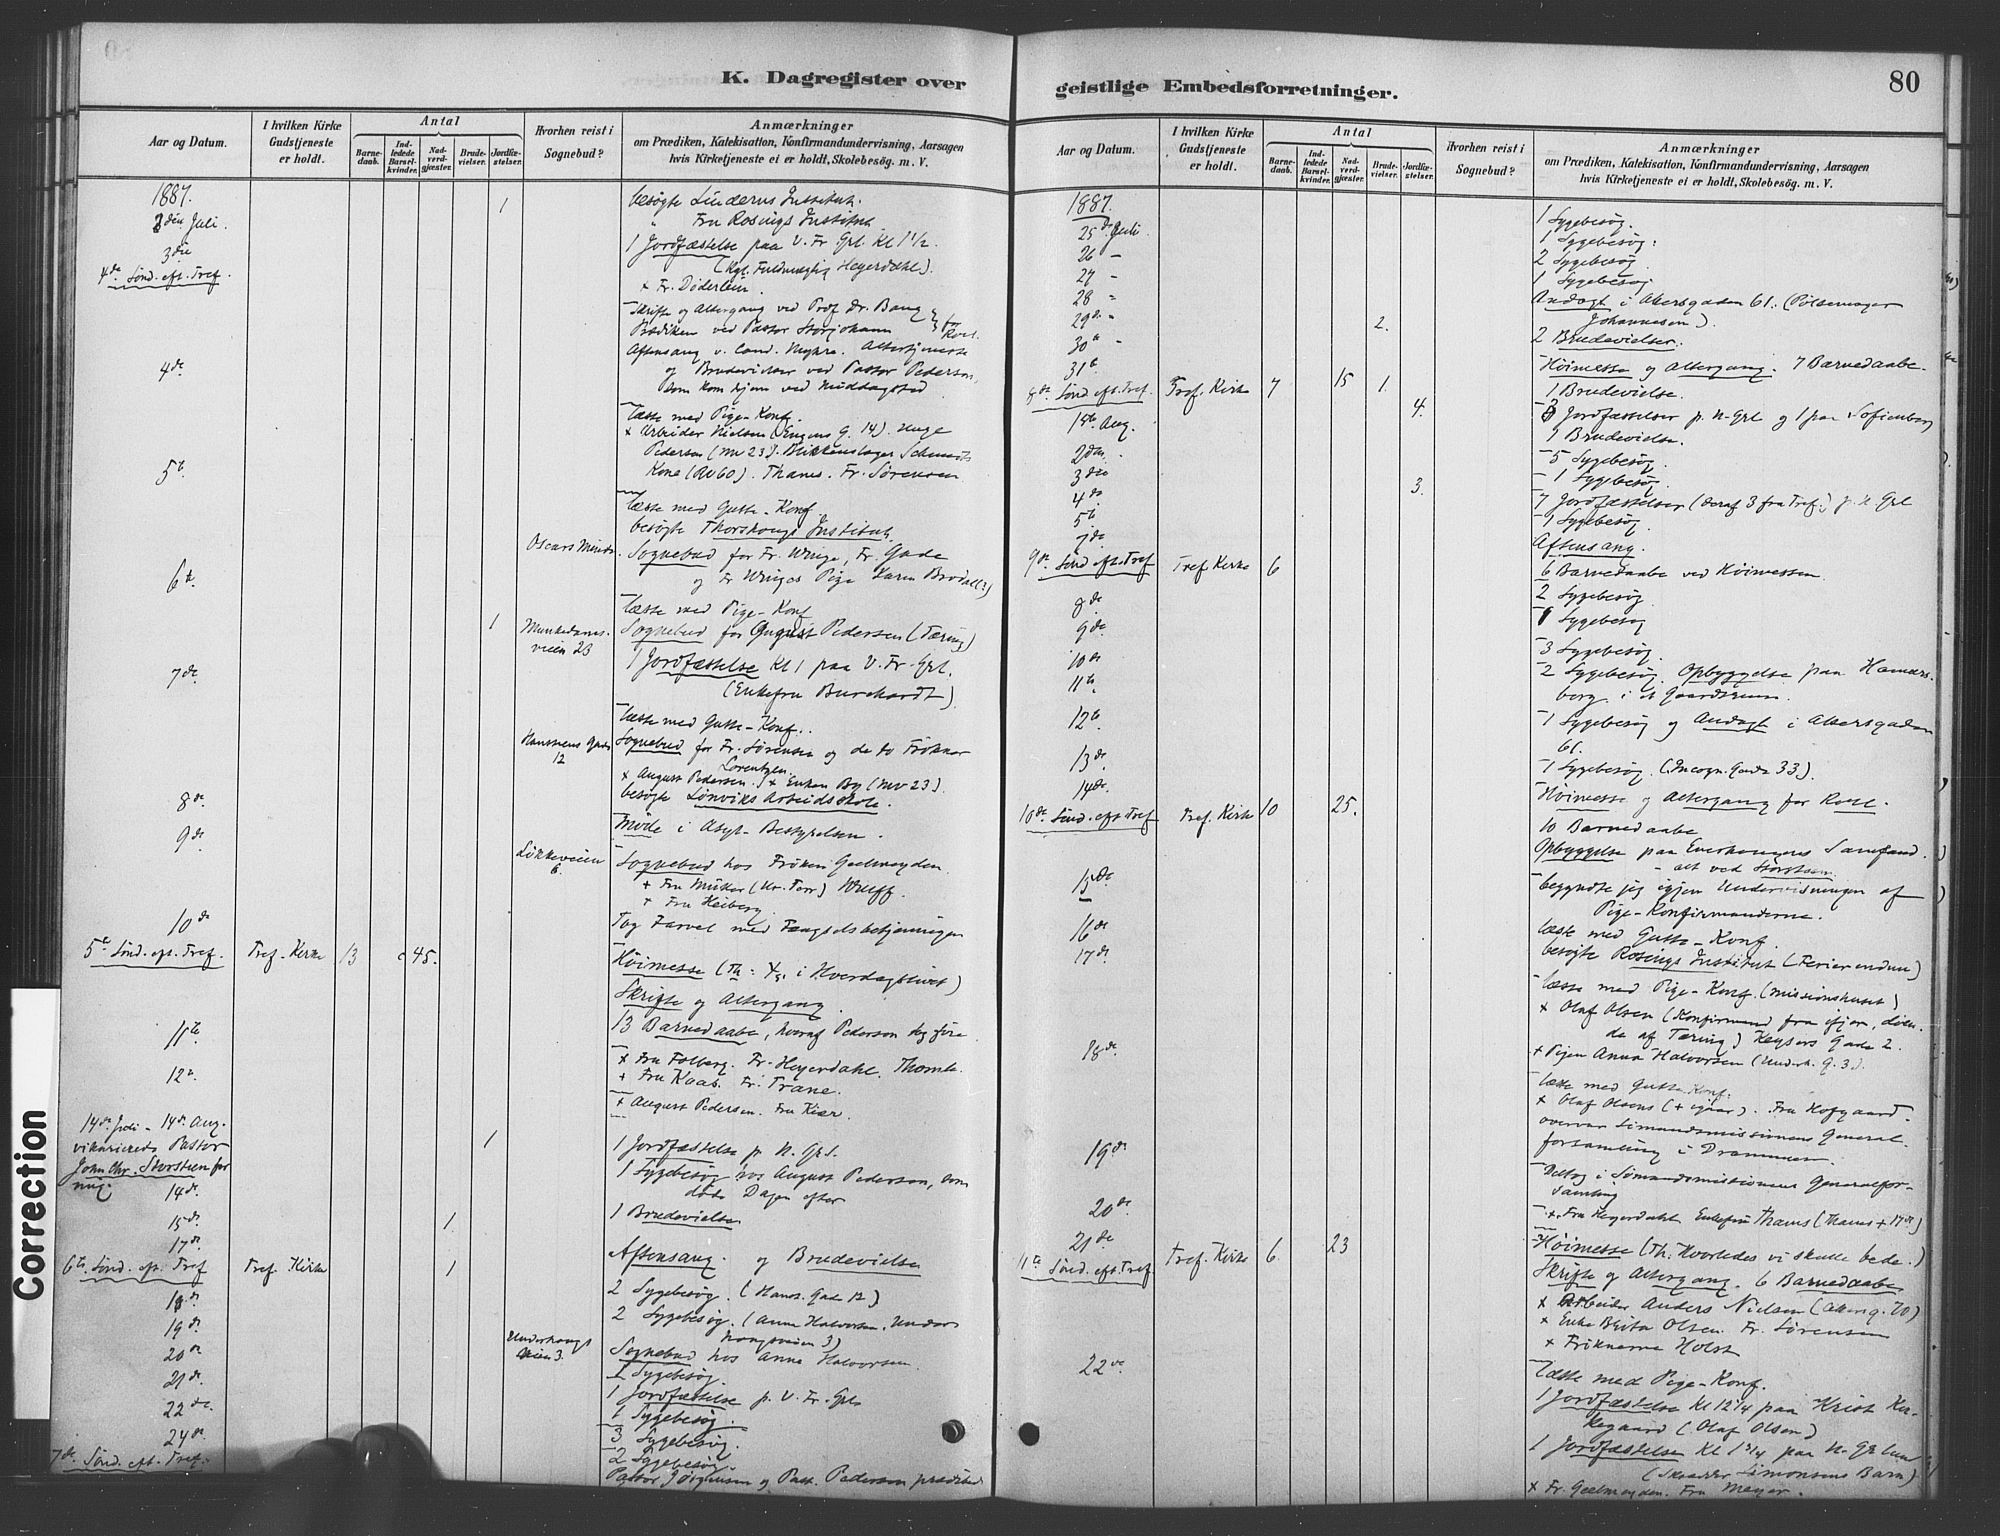 K. Dagregister over
Aar og Datum.
I hvilken Kirke Gudstjeneste er holdt.
Antal
Barnedaab.
Indledede Barselkvinder.
Nadverdgjæster.
Brudevielser.
Jordfæstelser.
Hvorhen reist i Sognebud?
Anmærkninger
om Prædiken, Katekisation, Konfirmandundervisning, Aarsagen
hvis Kirketjeneste ei er holdt, Skolebesøg. m. V.
1887.
2den Juli. 1 besøgte Linderns Institut.
" Fru Rosings Institut
3die 1 Jordfæstelse paa V. Fr. Grl. Kl 1 1/2.
(Kgl. Fuldmægtig Heyerdahl).
+ Fr. Döderlein.
4de Sønd. eft. Tref.
Skrifte og Altergang ved Prof. Dr. Bang
Prædiken ved Pastor Storjohann
Aftensang v. Cand. Myhre. Altertjeneste
og Brudevielser ved Pastor Pederson,
som kom hjem ved Middagstid
4de læste med Pige-Konf.
+ Arbeider Nielsen (Engens G. 14). Unge
Pederson (Mv 23). Blikkenslager Schmidts
Kone (Rv60). Thanes. Fr. Sørensen
5te læste med Gutte-Konf
besøgte Thorskougs Institut.
Oscars Sognebud for Fr. Winge, Fr. Gade
og Fr Winges Pige Karen Brodal(?)
6te læste med Pige-Konf
1 Munkedams-
veien 23 Sognebud for August Pedersen (Tæring)
1 Jordfæstelse Kl 1 paa V. Fr. Grl.
(Enkefru Burchardt).
7de læste med Gutte-Konf.
12 Sognebud for Fr. Sørensen og de to Frøkner
Lorentzen.
+ August Pedersen. + Enken By (Mv 23).
besøgte Lønviks Arbeidsskole.
8de Møde i Asyl-Bestyrelsen.
9de Løkkeveien
6. Sognebud hos Frøken Geelmuyden
+ Fru Müller (Kr. Torv) Wulff.
+ Fru Heiberg
10de Tog Farvel med Fængselsbetjeningen
5te Sønd. eft. Tref. Tref-Kirke 13 c 45. Høimesse (Th: i Hverdagslivet)
Skrifte og Altergang.
13 Barnedaabe, hvoraf Pederson
11te + Fru Folberg. Fr. Heyerdahl. Thomle.
12te + Fru Kaab. Fr. Trane.
+ August Pedersen. Fru Kiær.
14de Juli - 14de Aug.
vikarierede Pastor
John Chr. Storsteen for
mig.
14de 1 1 Jordfæstelse p. N. Grl.
1 Sygebesøg hos August Pedersen, som
døde Dagen efter
15de 1 1 Brudevielse
17de
6te Sønd. eft. Tref Tref. Kirke 1 Aftensang. og Brudevielse
18de 2 Sygebesøg. (Hans. Gade 12)
19de 2 Sygebesøg. (Anna Halvorsen. Under
haugsveien 3)
20de Underhaugs
veien 3. Sognebud hos Anna Halvorsen.
21de 1 Sygebesøg.
1 Jordfæstelse p. V. Fr. Grl.
22de. 1 Sygebesøg.
3 Sygebesøg.
24de 2 Sygebesøg.
7de Sønd. eft. Tref. Pastor Jørgensen og Past. Pederson prædiked
geistlige Embedsforretninger.
80
Aar og Datum.
I hvilken Kirke Gudstjeneste er holdt.
Antal
Barnedaab.
Indledede Barselkvinder.
Nadverdgjæster.
Brudevielser.
Jordfæstelser.
Hvorhen reist i Sognebud?
Anmærkninger
om Prædiken, Katekisation, Konfirmandundervisning, Aarsagen
hvis Kirketjeneste ei er holdt, Skolebesøg. m. V.
1887.
25de Juli. 1 Sygebesøg.
26 - 1 Sygebesøg.
27 - 2 Sygebesøg
28 - 1 Sygebesøg
29de - Andagt i Akersgaden 61. (Pølsemager
Johannesen).
30te - 2. 2 Brudevielser.
31te
8de Sønd. eft. Tref. Tref. Kirke 7 15 1. Høimesse og Altergang. 7 Barnedaabe.
1 Brudevielse.
1ste Aug. 4. 3 Jordfæstelser p. N-Grl og 1 paa Sofienberg
1 Brudevielse.
2den 5 Sygebesøg.
3die 1 Sygebesøg
4de 3. 7 Jordfæstelser (deraf 3 fra Tref:) p. N. Grl
5te 1 Sygebesøg
7de Aftensang.
9de Sønd. eft. Tref Tref Kirke 6 6 Barnedaabe ved Høimessen.
8de 2 Sygebesøg
9de 1 Sygebesøg
10de 3 Sygebesøg.
11te 2 Sygebesøg. Opbyggelse paa Hamars-
borg i et Gaardsrum.
12te 1 Sygebesøg og Andagt i Akersgaden
61.
13de 1 Sygebesøg. (Incogn. Gade 33).
14de
10de Sønd. eft. Tref Tref. Kirke 10 25. Høimesse og Altergang for
10 Barnedaabe
Opbyggelse paa Samfund.
- alt ved Storsteen.
15de begyndte jeg igjen Undervisningen af
Pige-Konfirmanderne.
16de læste med Gutte-Konf.
besøgte Rosings Institut (Ferier endnu)
17de læste med Pige-Konf. (Missionshuset)
+ Olaf Olsen (Konfirmand fra ifjor, døen-
de af Tæring) Keysers Gade 2.
+ Pigen Anna Halvorsen (Underh. G. 3).
18de læste med Gutte Konf.
+ Olaf Olsens (+ igaar). Fru Hofgaard.
overvar Sømandsmissionens General-
forsamling i Drammen.
19de Deltog i Sømandsmissionens Generalfor-
samling
20de + Fru Heyerdahl Enkefru Thams (Thams + 17de)
21de
11te Sønd. eft. Tref Tref. Kirke 6. 23 Høimesse (Th. Hvorledes vi skulle bede.)
Skrifte og Altergang. 6 Barnedaabe
+ Arbeider Anders Nielsen (Akersg. 70)
+ Enke Berta Olsen. Fr. Sørensen
+ Frøknerne Holst
22de læste med Pige-Konf.
1 Jordfæstelse Kl 12 1/4 paa Krist Kir-
kegaard (Olaf Olsen)
1 Jordfæstelse Kl 1 3/4 paa N. Grlund
(Skrædder Simonsens Barn)
+ Fr. Geelmuyden. Fru Meyer.
Correction